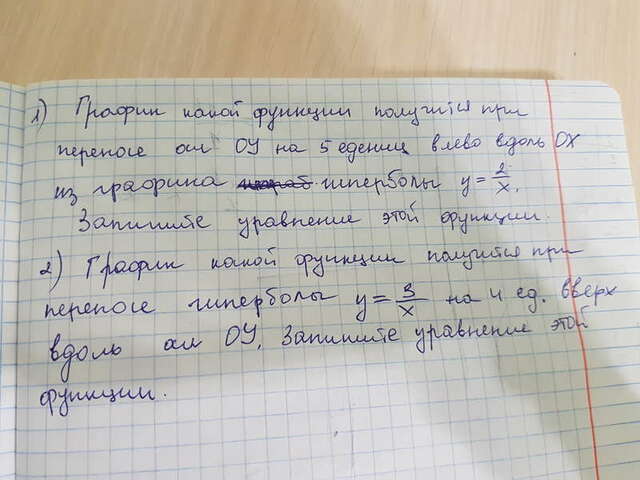 1) График какой функции получится при
переносе оси ОУ на 5 единиц влево вдоль ОХ
из графика гиперболы y = 2/x.
Запишите уравнение этой функции.
2) График какой функции получится при
переносе гиперболы y = 8/x на 4 ед. вверх
вдоль оси ОУ. Запишите уравнение этой
функции.